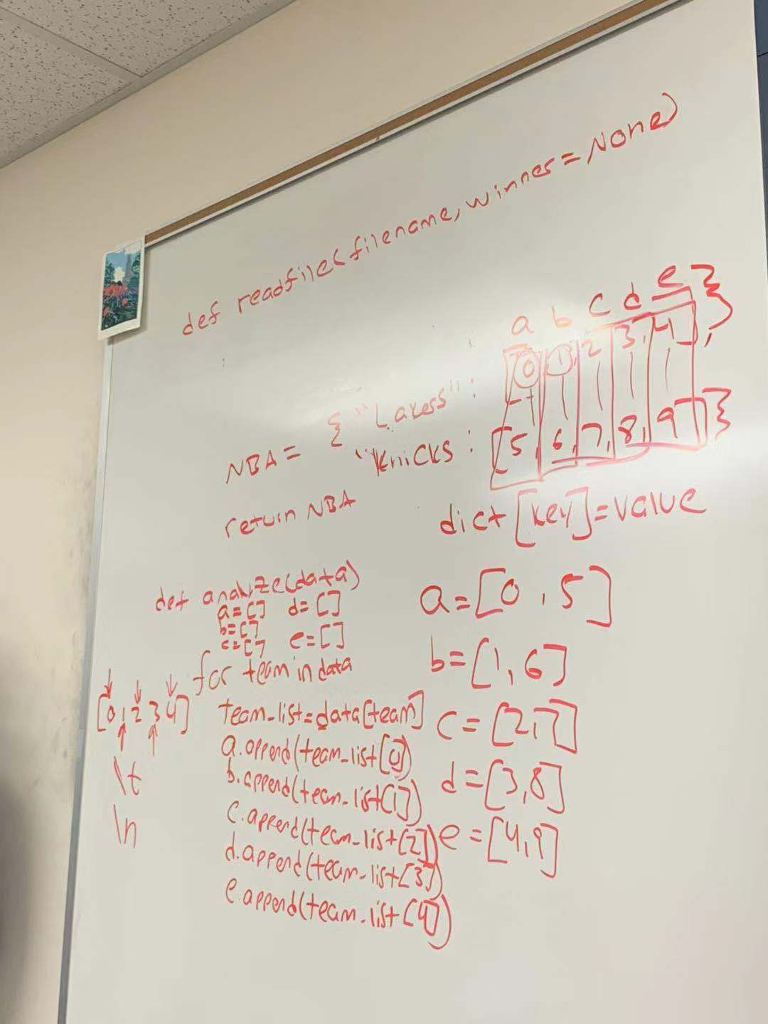 def readfile(filename, winner=None)
a b c d e
NBA = { "Lakers": [0, 1, 2, 3, 4] },
"Knicks: [5, 6, 7, 8, 9] }
return NBA
dict [key]=value
def analyze(data)
a=[] d=[]
b=[]
c=[] e=[]
for team in data
[0, 1 2 3 4]
team_list=data[team]
a.append(team_list[0)
b.append(team_list[1])
c.append(team_list[2])
d.append(team_list[3])
e.append(team_list[4])
\t
\n
a=[0, 5]
b=[1, 6]
c=[2, 7]
d=[3, 8]
e=[4, 9]